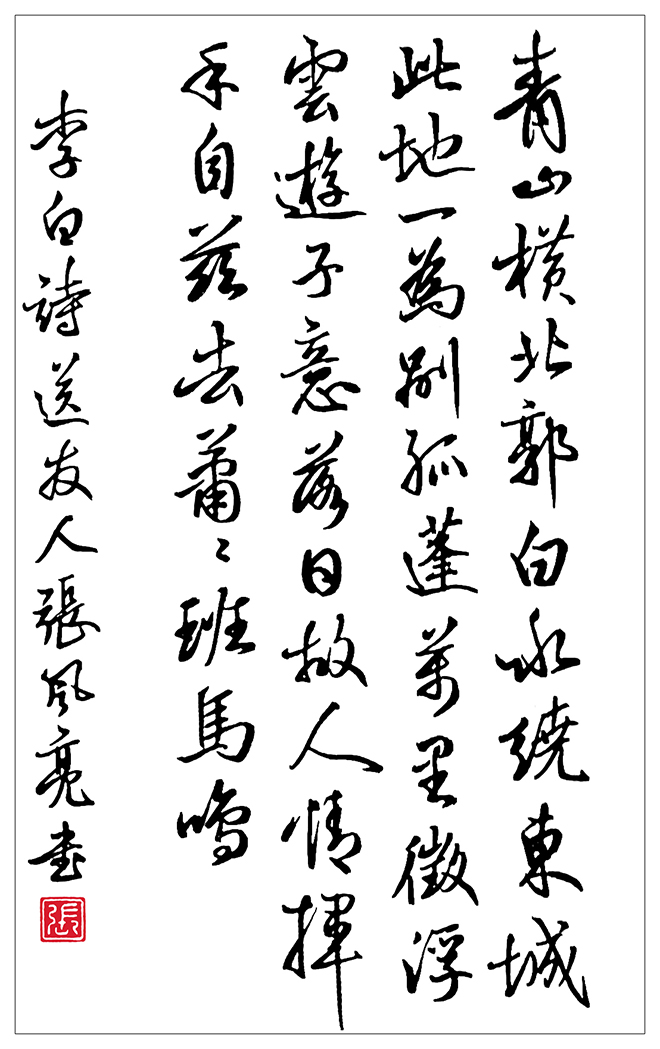 青山橫北郭白水繞東城
此地一為別孤蓬萬里徵浮
雲遊子意落日故人情揮
手自茲去蕭〻班馬鳴
李白詩送友人張風亮書
張